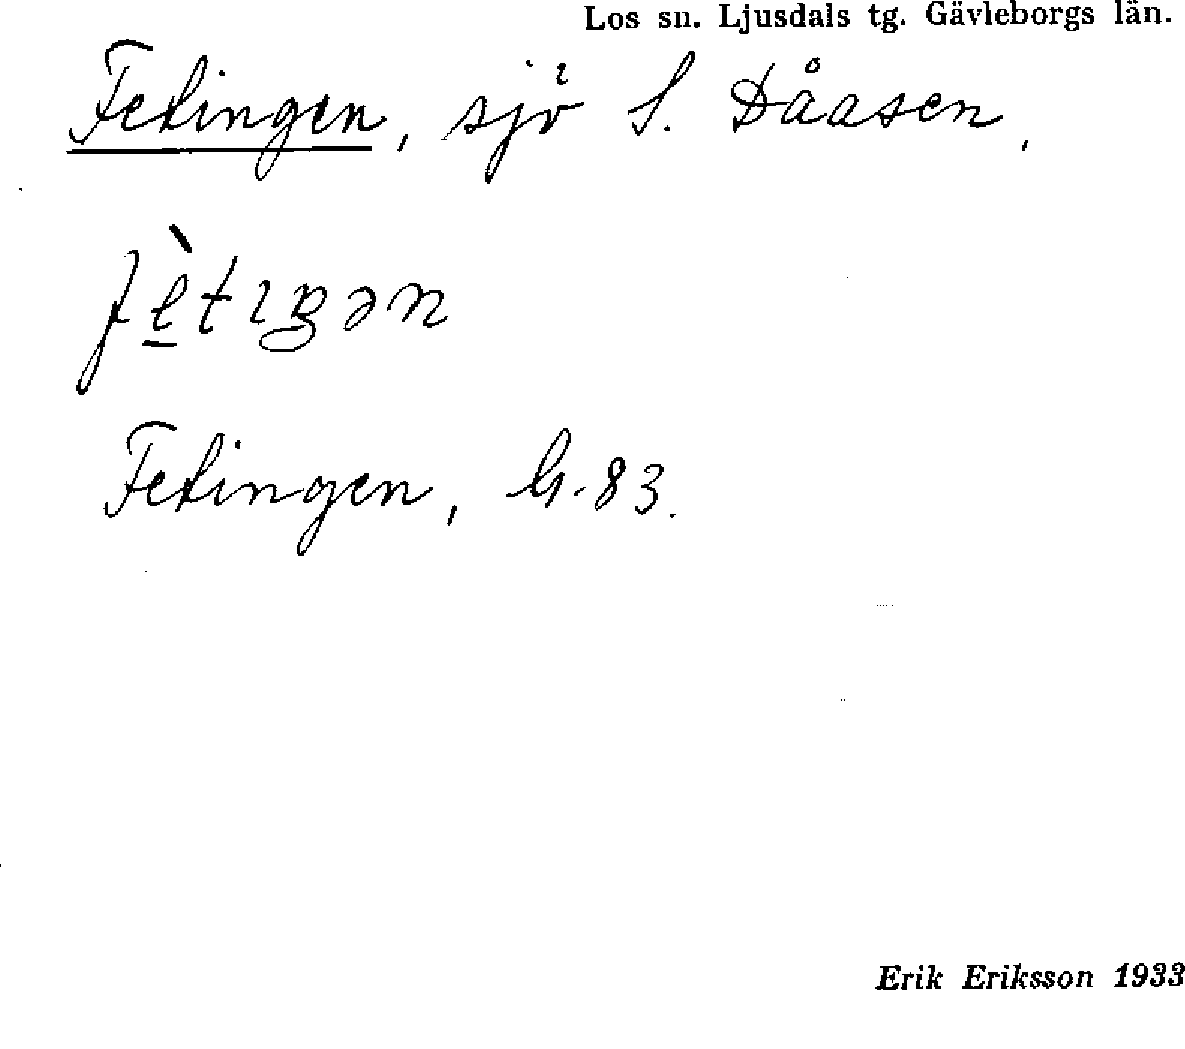 Los sn. Ljusdals tg. Gävleborgs län.
Fetingen, sjö S. Dåasen,
Fetingen, G. 83.
Erik Eriksson 1933